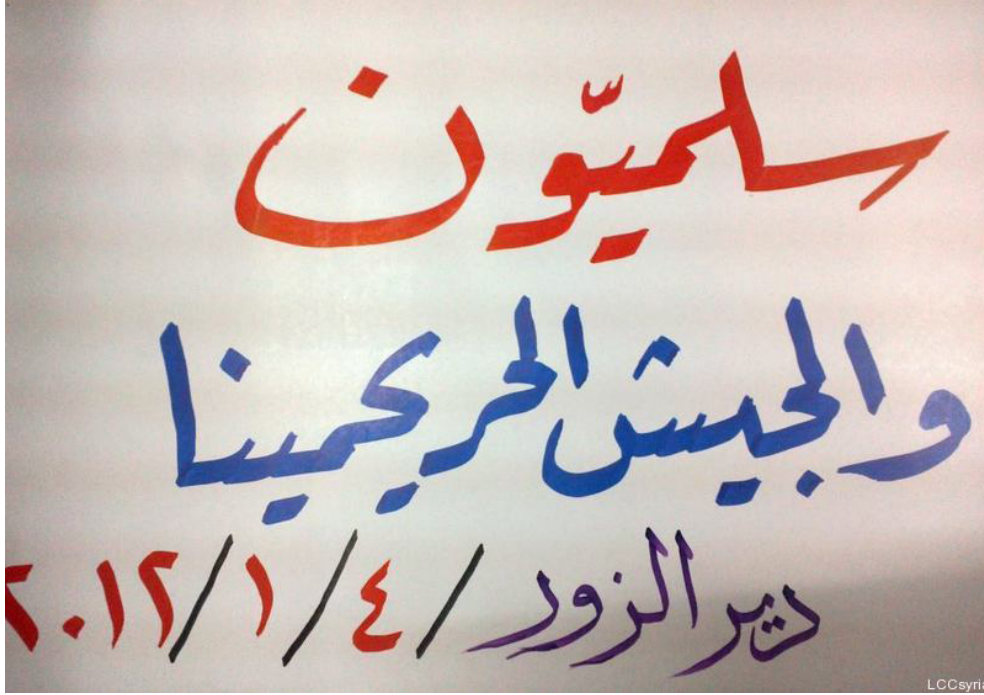 سلميّون
والجيش الحر يحمينا
دير الزور / ٤ / ١ / ٢٠١٢
LCCsyria